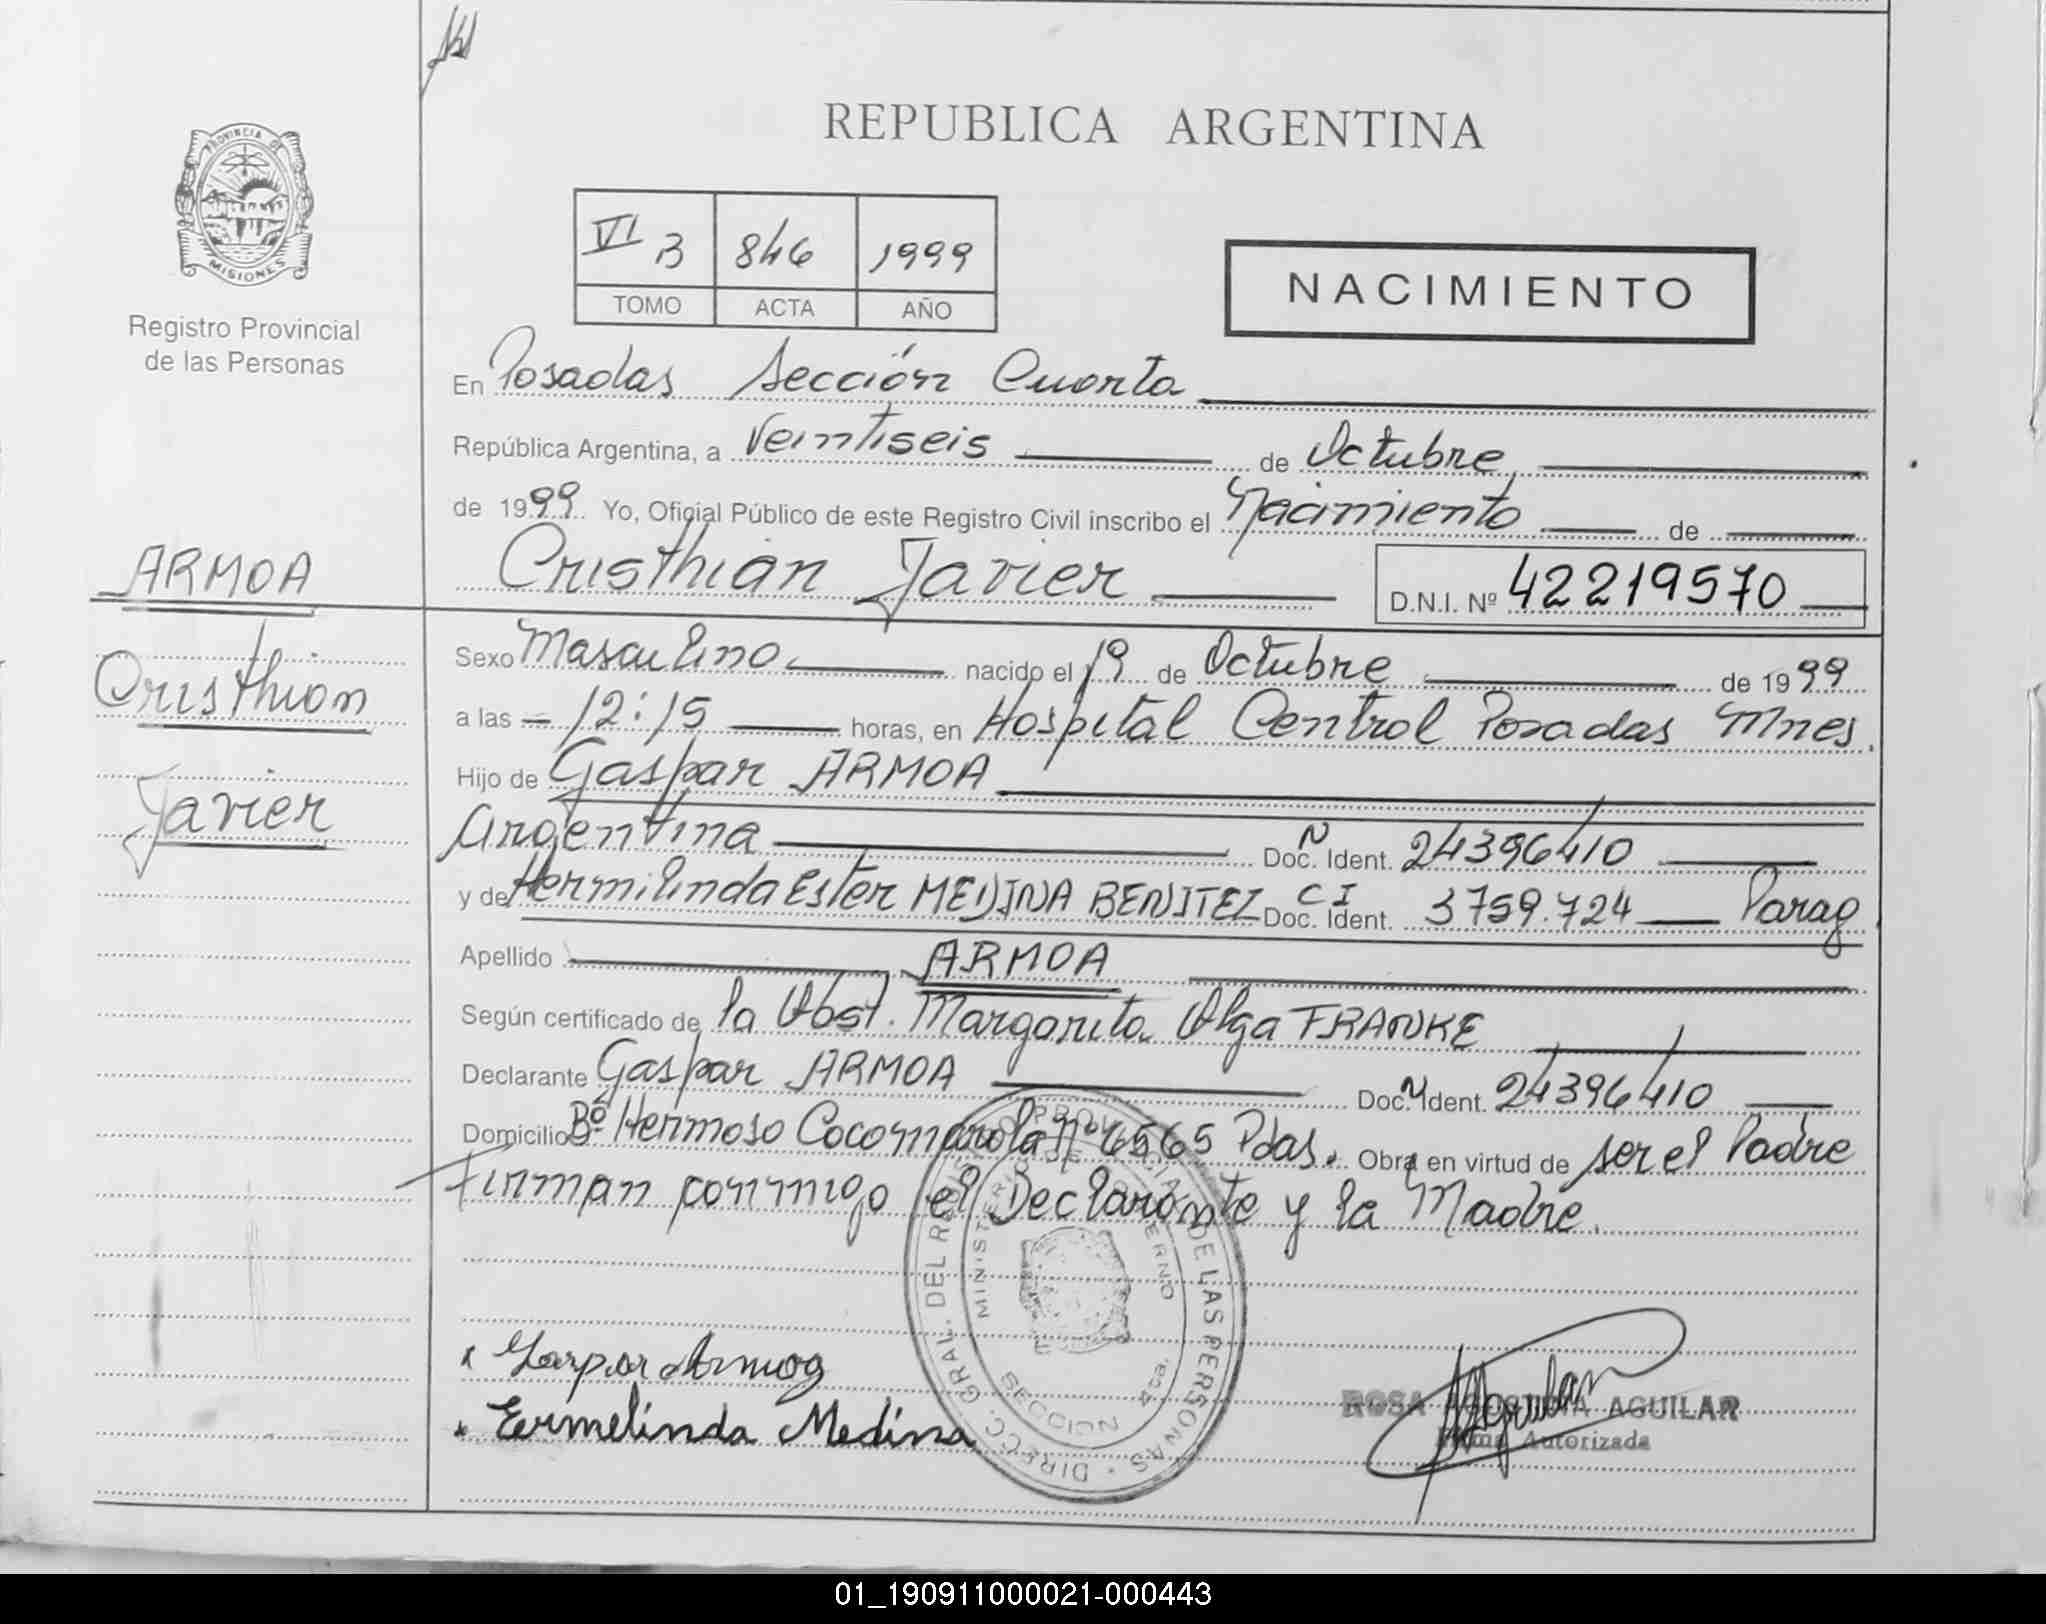 REPUBLICA ARGENTINA
PROVINCIA DE
MISIONES
Registro Provincial
de las Personas
VI B 846 1999
TOMO ACTA AÑO
NACIMIENTO
En Posadas Sección Cuarta
República Argentina, a Veintiseis de Octubre
de 1999 Yo, Oficial Público de este Registro Civil inscribo el Nacimiento de
ARMOA
Cristhian Javier D.N.I. Nº 42219570
Cristhian
Javier
Sexo Masculino nacido el 19 de Octubre de 1999
a las 12:15 horas, en Hospital Central Posadas Mnes.
Hijo de Gaspar ARMOA
Argentina Doc. N Ident. 24396410
y de Hermilinda Ester MEDINA BENITEZ Doc. CI Ident. 3759.724 Parag
Apellido ARMOA
Según certificado de la Obst. Margarita Olga FRANKE
Declarante Gaspar ARMOA Doc. N Ident. 24396410
Domicilio Bº Hermoso Cocomarola Nº 6565 Pdas. Obra en virtud de ser el Padre
Firman conmigo el Declarante y la Madre.
DIRECC. GRAL. DEL REGISTRO PROVINCIAL DE LAS PERSONAS
MINISTERIO DE GOBIERNO
SECCION 4ta.
x Gaspar Armoa
x Ermelinda Medina
ROSA AGUILAR
Firma Autorizada
01_190911000021-000443